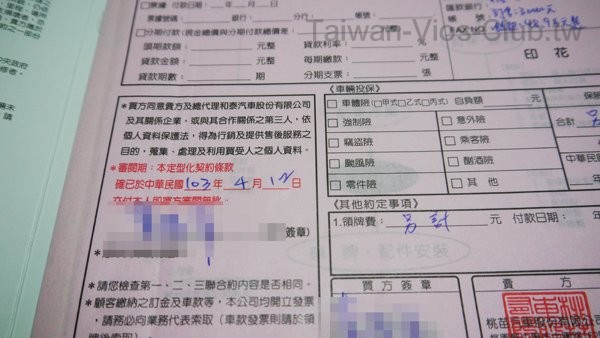 Taiwan-Vios-Club.tw
□票據 付款日期： 年 月 日
票據號碼： 銀行： 分行： 帳號：
□分期付款：現金總價與分期付款總價差： 元整
頭期款額： 元整 貸款利率： %
貸款金額： 元整 每期繳款： 元整
貸款期數： 期 分期支票： 張
帳號：
FAX NO：
印 花
*買方同意貴方及總代理和泰汽車股份有限公司
及其關係企業，或與其合作關係之第三人，依
個人資料保護法，得為行銷及提供售後服務之
目的，蒐集、處理及利用買受人之個人資料。
*審閱期：本定型化契約條款
確已於中華民國 103 年 4 月 12 日
交付本人即買方審閱無訛。
簽章）
*請您檢查第一、二、三聯合約內容是否相同。
*顧客繳納之訂金及車款等，本公司均開立發票
，請務必向業務代表索取（車款發票則請於領
牌後索取
〔車輛投保〕
□車體險（□甲式□乙式□丙式）自負額 元
□強制險 □意外險
□竊盜險 □乘客險
□颱風險 □酗酒險
□零件險 □其他
保險
合計
中華民
年
〔其他約定事項〕
1.領牌費： 另計 元 付款日期： 年
買 方 簽 章
貴 方
桃苗汽車股份有限公